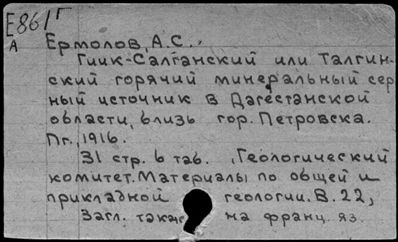 Е86/Г
А
Ермолов, А.С.
Гиик-Салганский или Талгин-
ский горячий минеральный сер-
ный источник в Дагестанской
области, близь гор. Петровска.
Пг., 1916.
31 стр. 6 таб. (Геологический
комитет. Материалы по общей и
прикладной геологии. В. 22,
Загл. также на франц. яз.